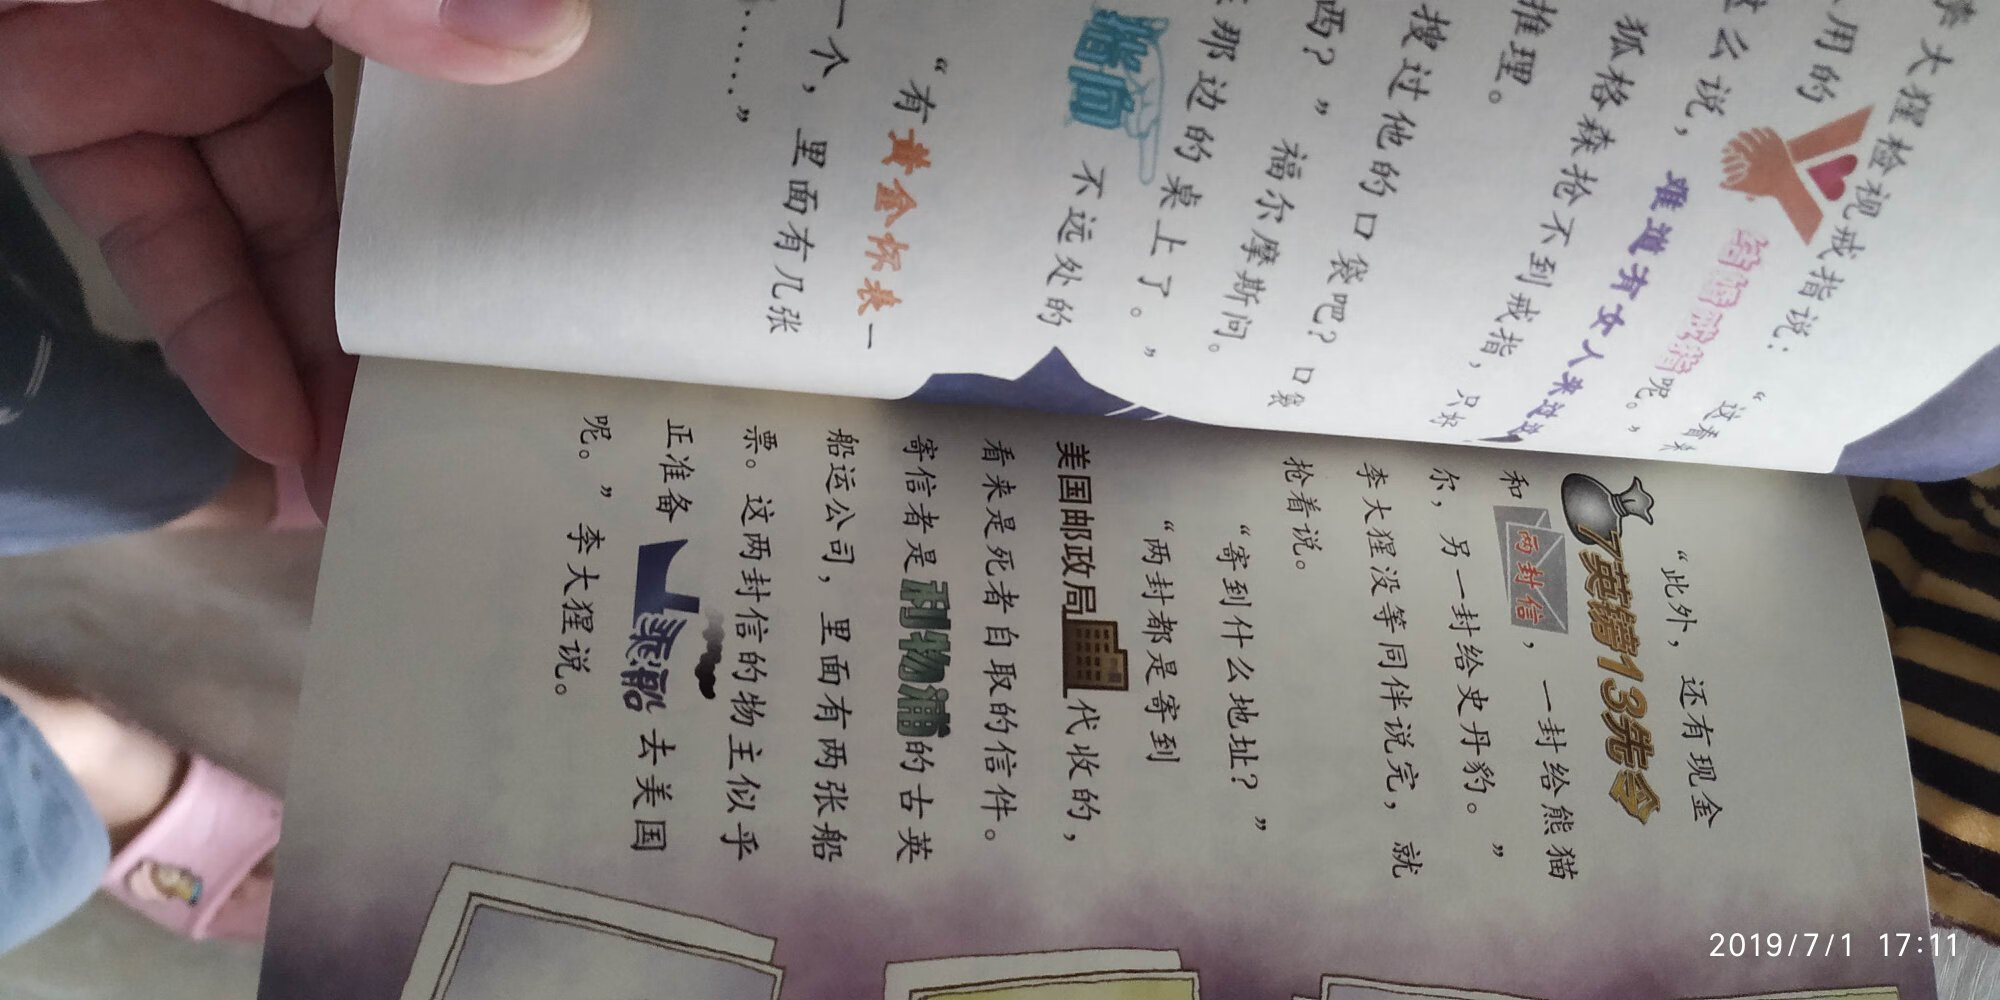 李大猩检视戒指说：“这看来
用的结婚戒指呢。”
这么说，难道有女人来过这
狐格森抢不到戒指，只好
推理。
搜过他的口袋吧？口袋
西？”福尔摩斯问。
那边的桌上了。”
指向不远处的
“有黄金怀表一
一个，里面有几张
……”
“此外，还有现金
7英镑13先令
和两封信，一封给熊猫
尔，另一封给史丹豹。”
李大猩没等同伴说完，就
抢着说。
“寄到什么地址？”
“两封都是寄到
美国邮政局代收的，
看来是死者自取的信件。
寄信者是利物浦的古英
船运公司，里面有两张船
票。这两封信的物主似乎
正准备乘船去美国
呢。”李大猩说。
2019/7/1 17:11